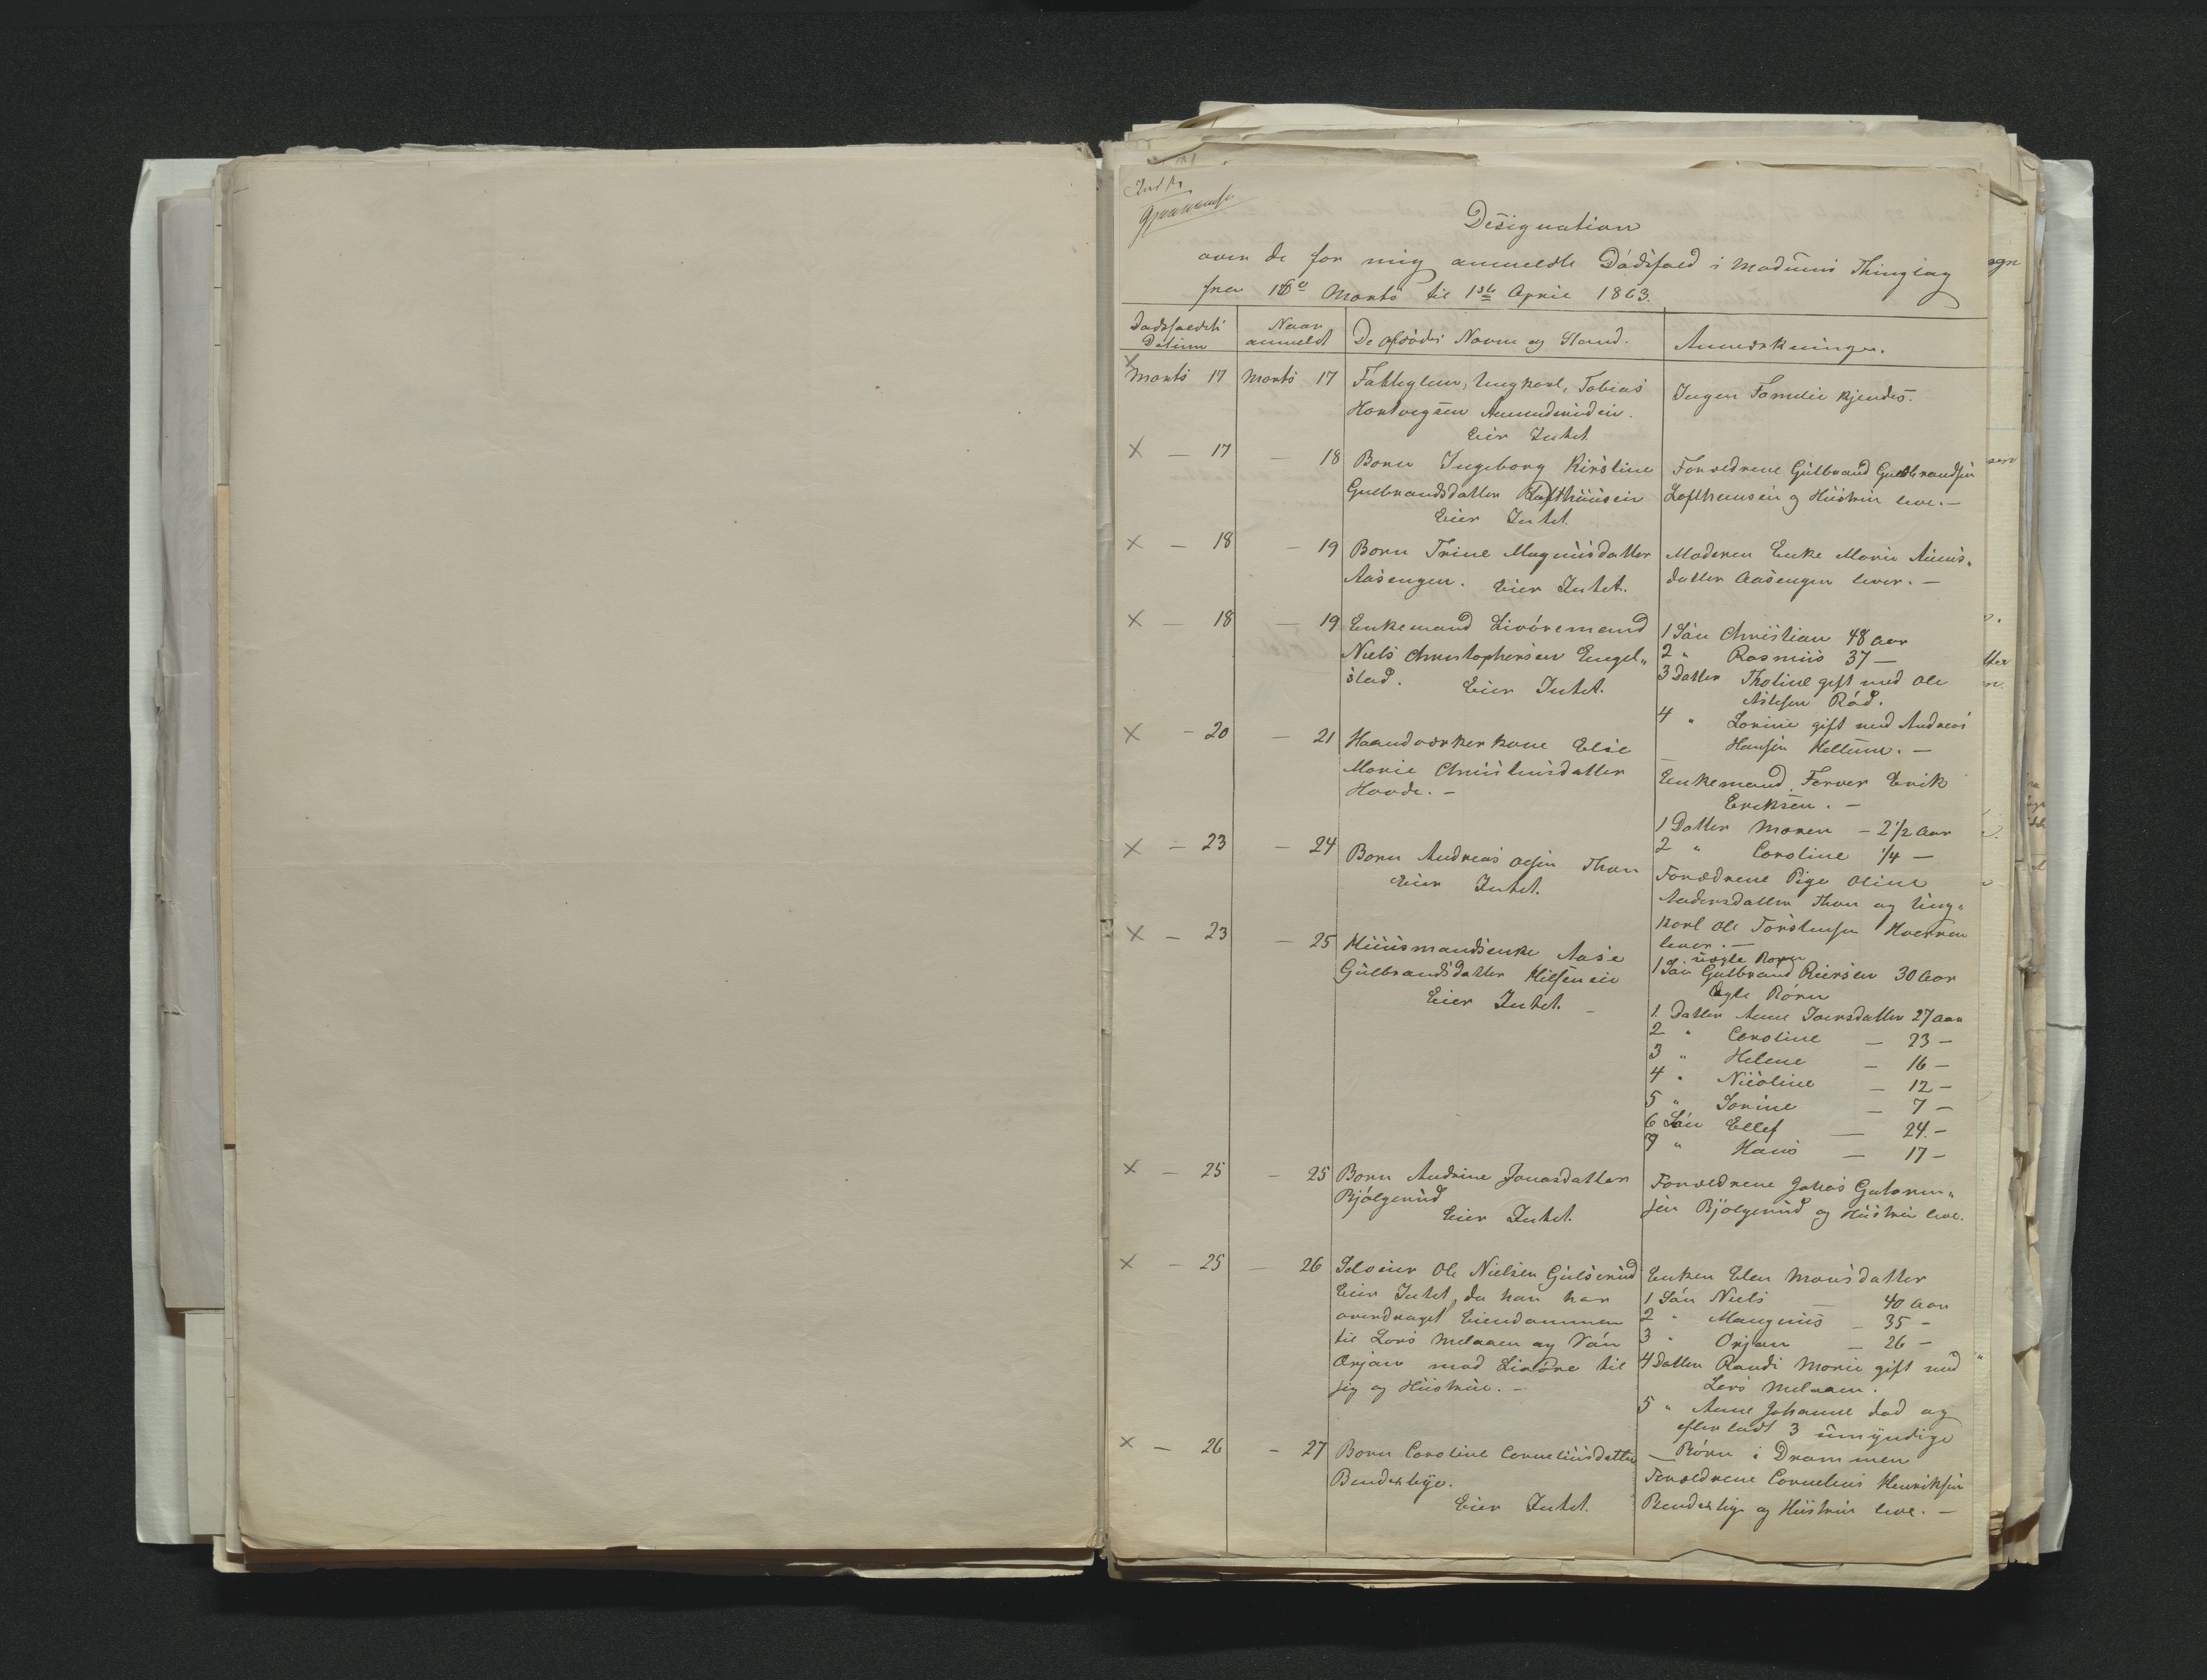 Designation
over de for mig anmeldte Dödsfald i Modums Thinglag
fra 16de Marts til 1ste April 1863.
Dødsfaldets Datum
Naar anmeldt
De afdødes Navne og Stand.
Anmærkninger.
Marts 17 Marts 17
Fattiglem, Ungkarl, Tobias
Hartvigsen Amundrudeie.
Eier Intet
Ingen Familie kjendes.
X — 17 — 18
Barn Ingeborg Kirstine
Gulbrandsdatter Lofthuuseie
Eier Intet.
Forældrene Gulbrand Gulbrandsen
Lofthuuseie og Hustru leve. —
X — 18 — 19
Barn Trine Magnusdatter
Aasengen. Eier Intet.
Moderen Enke Marie
datter Aasengen lever. —
X — 18 — 19
Enkemand Livöremand
Niels Christophersen Engel„
stad. Eier Intet.
1 Sön Christian 48 Aar
2 " Rasmus 37 —
3 Datter Tholine gift med Ole
Aslesen Röd.
4 " Lorine gift med Andreas
Hansen Hellum. —
X — 20 — 21
Haandværkerkone Elise
Marie Christensdatter
Hovde. —
Enkemand Farver Erik
Eriksen. —
1 Datter Maren — 2 1/2 Aar
2 " Caroline 1/4 —
X — 23 — 24
Barn Andreas Olsen Thon
Eier Intet.
Forældrene Pige Oline
Andersdatter Thon og Ung„
karl Ole Torstensen
lever. —
X — 23 — 25
Huusmandsenke Aase
Gulbrandsdatter
Eier Intet. —
uægte Barn
1 Sön Gulbrand Reiersen 30 Aar
Ægte Börn
1. Datter Anne Iversdatter 27 Aar
2 " Caroline — 23 —
3 " Helene — 16 —
4 " Nicoline — 12 —
5 " Sorine — 7 —
6 Sön Ellef — 24. —
7 " Hans — 17 —
X — 25 — 25
Barn Andrine Jonasdatter
Bjölgerud
Eier Intet.
Forældrene Johas Gutorm„
sen Bjölgerud og Hustru leve.
X — 25 — 26
Selveier Ole Nielsen Gulserud
Eier Intet, da han har
overdraget Eiendommen
til Lars Melaaen og Sön
Ørjan mod Livöre til
sig og Hustru. —
Enken Elen Monsdatter
1 Sön Niels — 40 Aar
2 " Maugnus — 35 —
3 " Orjan — 26 —
4 Datter Randi Marie gift med
Lars Melaaen.
5 " Anne Johanne död og
efterladt 3 umyndige
— Börn i Drammen
X — 26 — 27
Barn Caroline Corneliusdatter
Bendekbye.
Eier Intet.
Forældrene Cornelius Henriksen
Bendekbye og Hustru leve. —